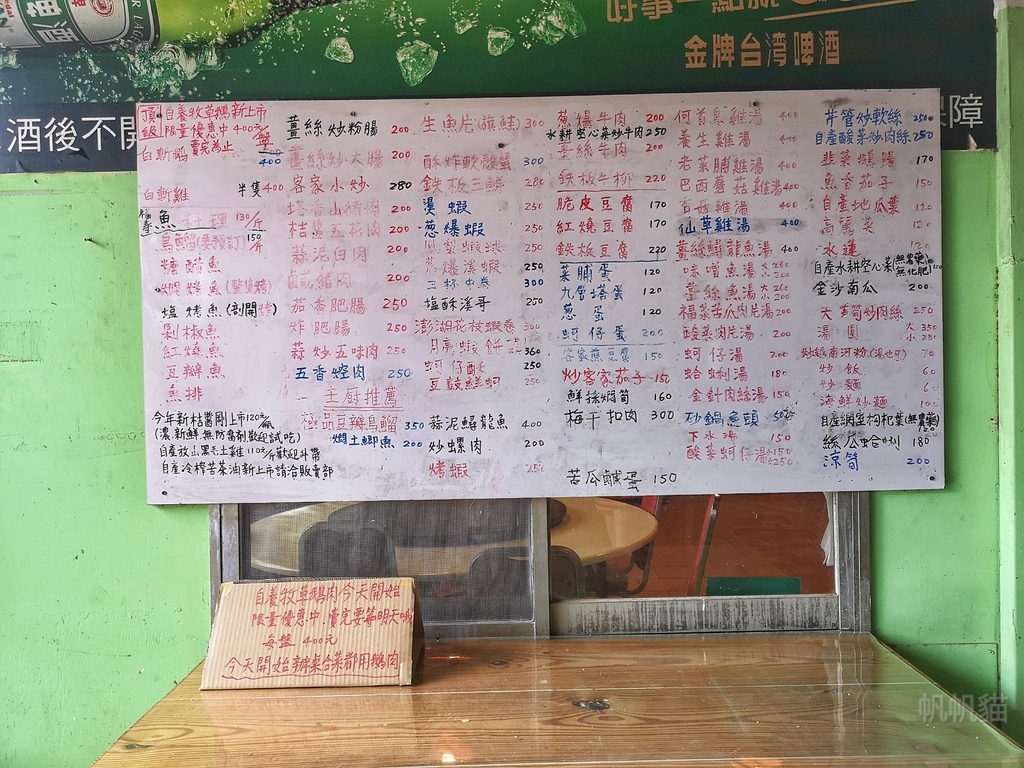 金牌台湾啤酒
酒後不開
障
頂級 自養牧草鵝新上市
限量優惠中400元/盤
賣完為止
白斬鵝 400
白斬雞 半隻400
魚料理 130/斤
烏鰡(要預訂) 150/斤
糖醋魚
鹽烤魚(剖開烤)
剁椒魚
紅燒魚
豆瓣魚
魚排
今年新桔醬剛上市120元/瓶
(濃新鮮無防腐劑歡迎試吃)
自產放山黑毛土雞110元/斤歡迎外帶
自產冷榨苦茶油新上市請洽販賣部
薑絲炒粉腸 200
薑絲炒大腸 200
客家小炒 280
塔香山豬肉 200
桔醬五花肉 200
蒜泥白肉 200
鹹豬肉 200
茄香肥腸 250
炸肥腸 250
蒜炒五味肉 250
五香焢肉 250
主廚推薦
極品豆瓣烏鰡 350
燜土鯽魚 200
生魚片(旗鮭) 300
酥炸軟殼蟹 300
鐵板三鮮 280
燙蝦
蔥爆蝦
鳳梨蝦球 250
蔥爆溪蝦 250
三杯中卷 300
鹽酥溪哥 250
澎湖花枝蝦卷 300
月亮蝦餅
蚵仔酥 250
豆鼓鮮蚵 250
蒜泥鱘龍魚 400
炒螺肉 200
烤蝦 250
蔥爆牛肉 200
水耕空心菜炒牛肉 250
薑絲牛肉 200
鉄板牛柳 220
脆皮豆腐 170
紅燒豆腐 170
鉄板豆腐 220
菜脯蛋 120
九層塔蛋 120
蔥蛋 120
蚵仔蛋 200
客家煎豆腐 150
炒客家茄子 150
鮮採燜筍 160
梅干扣肉 300
苦瓜鹹蛋 150
何首烏雞湯 400
養生雞湯 400
老菜脯雞湯 400
巴西蘑菇雞湯 400
香菇雞湯 400
仙草雞湯 400
薑絲鱘龍魚湯 400
味噌魚湯 大260 小200
薑絲魚湯 大260 小200
福菜苦瓜肉片湯 200
酸菜肉片湯 200
蚵仔湯 200
蛤蜊湯 180
金針肉絲湯 150
砂鍋魚頭 500
下水湯 150
酸菜蚵仔湯 小150 大250
芹管炒軟絲 250
自產酸菜炒肉絲 250
韭菜 170
魚香茄子 150
自產地瓜葉 120
高麗菜 120
水蓮 120
自產水耕空心菜(無農藥 無化肥) 120
金沙南瓜 200
大黃筍炒肉絲 250
湯圓 大350
炒粄條河粉(湯也可) 70
炒飯 60
炒麵 60
海鮮炒麵 100
自產網室枸杞葉(無農藥) 120
絲瓜蛤蜊 180
涼筍 200
自養牧草鵝肉今天開始
限量優惠中 賣完要等明天哦
每盤 400元
今天開始桌菜都用鵝肉
帆帆貓